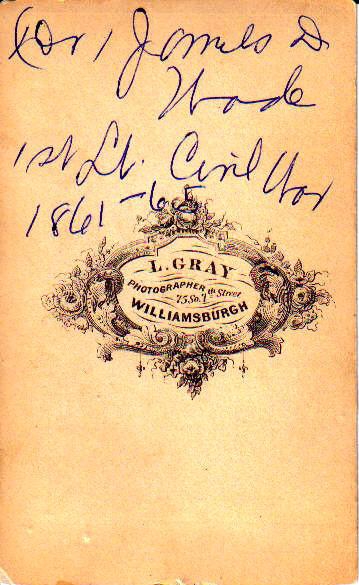 (Dr) James D
Wade
1st Lt. Civil War
1861-65
L. GRAY
PHOTOGRAPHER
75 So. 7th Street
WILLIAMSBURGH